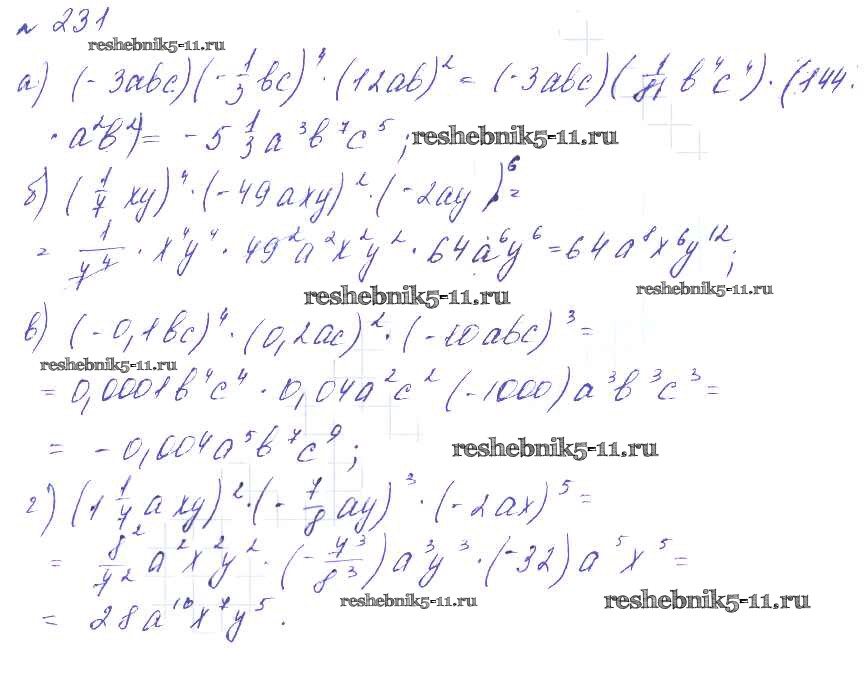 № 231
reshebnik5-11.ru
а) (-3abc)(-1/3 bc)⁴ · (12ab)² = (-3abc)(1/81 b⁴c⁴) · (144 ·
· a²b²) = -5 1/3 a³b⁷c⁵; reshebnik5-11.ru
б) (1/7 xy)⁴ · (-49axy)² · (-2ay)⁶ =
= 1/7⁴ · x⁴y⁴ · 49²a²x²y² · 64a⁶y⁶ = 64a⁸x⁶y¹²;
reshebnik5-11.ru reshebnik5-11.ru
в) (-0,1bc)⁴ · (0,2ac)² · (-10abc)³ =
reshebnik5-11.ru
= 0,0001b⁴c⁴ · 0,04a²c² (-1000)a³b³c³ =
= -0,004a⁵b⁷c⁹; reshebnik5-11.ru
г) (1 1/7 axy)² · (-7/8 ay)³ · (-2ax)⁵ =
= 8²/7² a²x²y² · (-7³/8³) a³y³ · (-32)a⁵x⁵ =
reshebnik5-11.ru reshebnik5-11.ru
= 28a¹⁰x⁷y⁵.